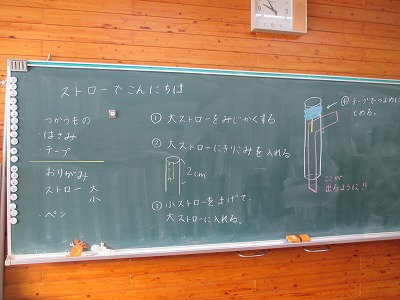 ストローでこんにちは
つかうもの
・はさみ
・テープ
おりがみ
ストロー 大
小
・ペン
① 大ストローをみじかくする
② 大ストローにきりこみを入れる
2cm
③ 小ストローをまげて、
大ストローに入れる。
④ テープでつよめに
とめる。
ここが
出るように!!